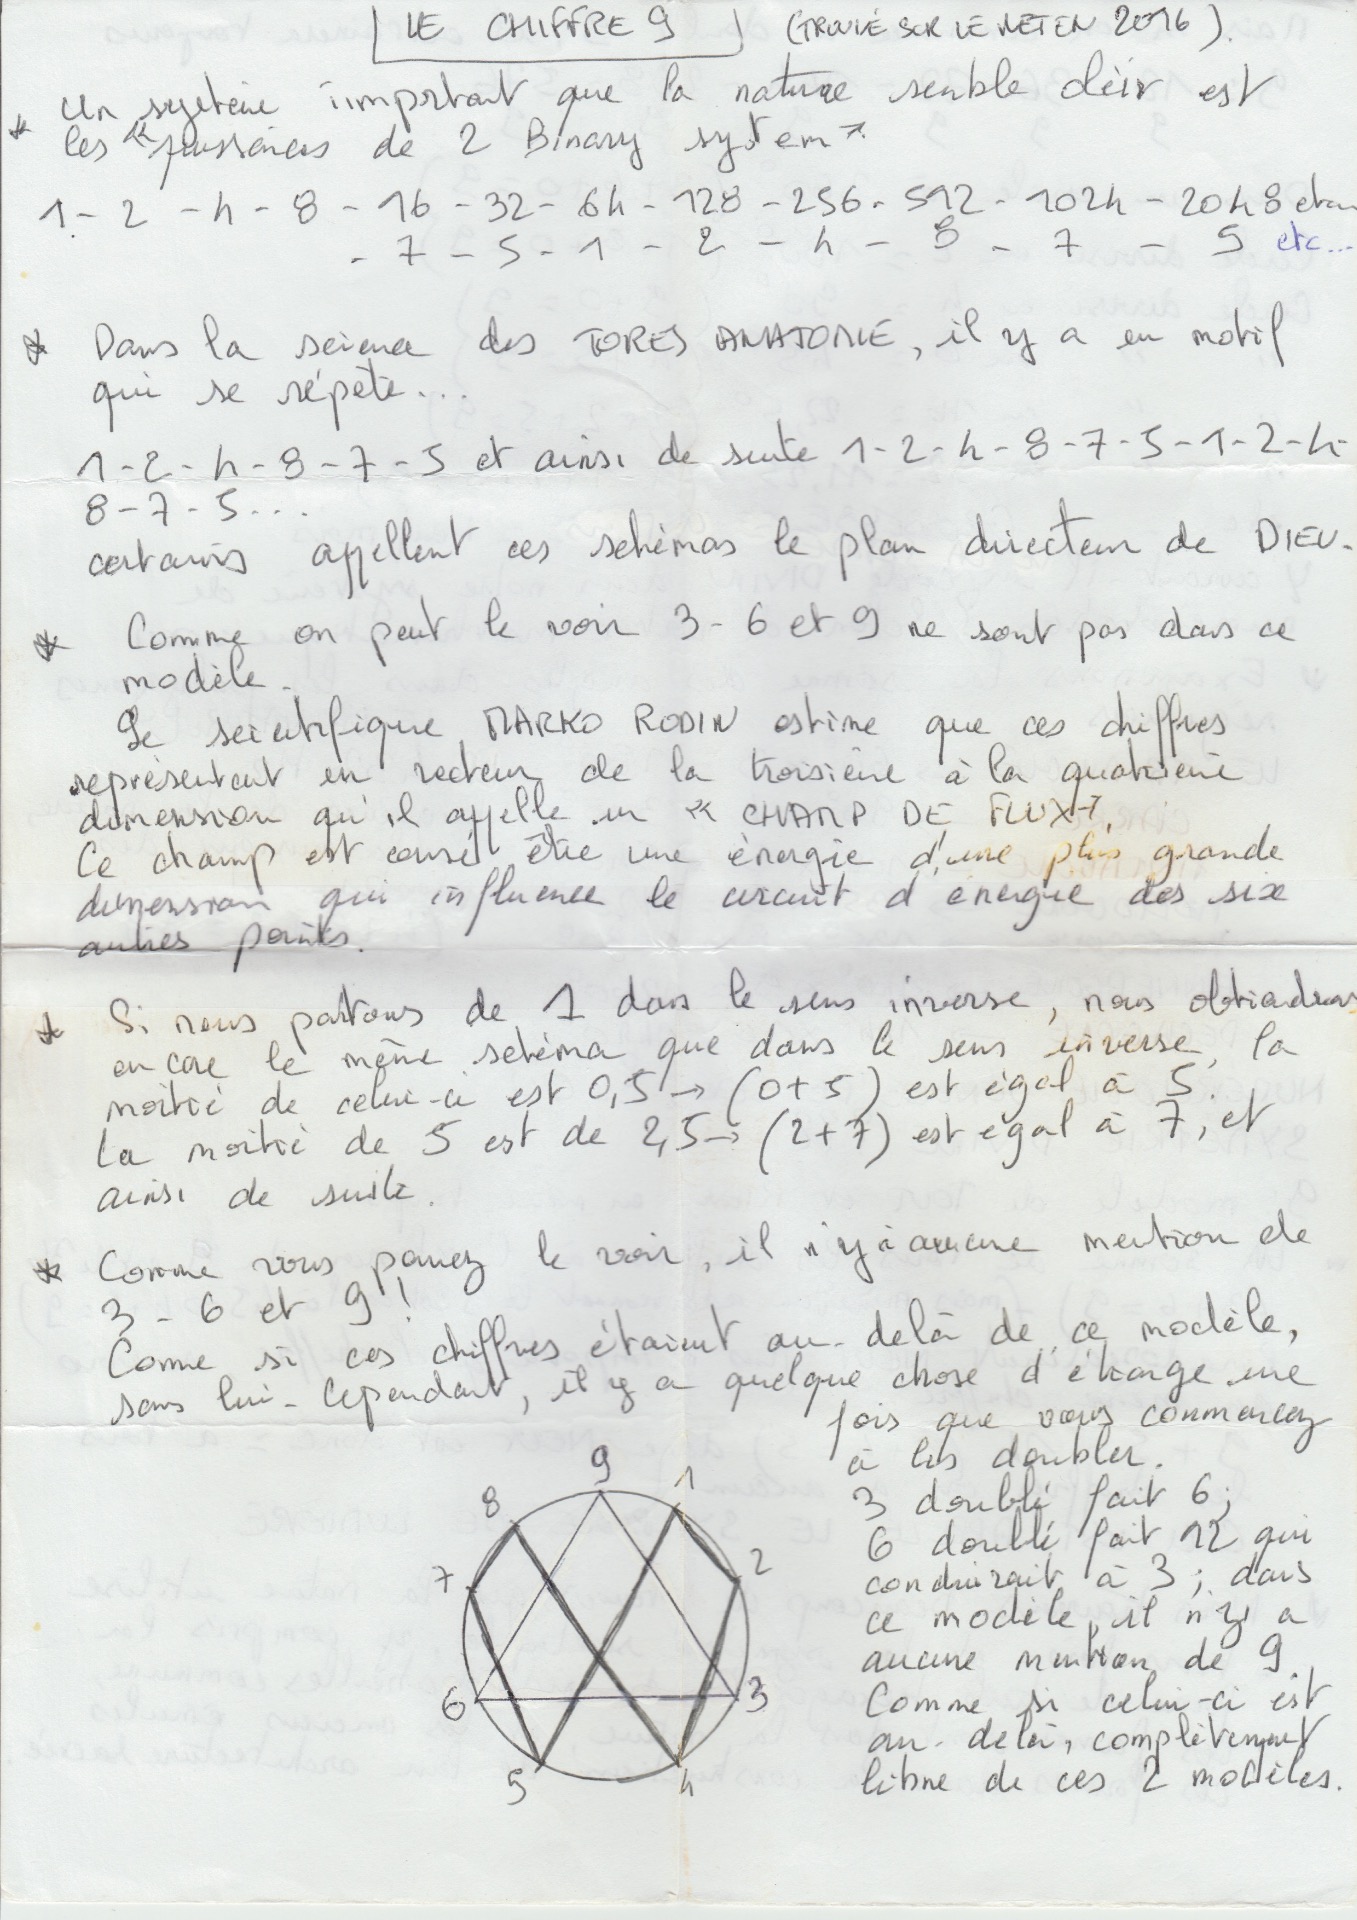 LE CHIFFRE 9 (TROUVÉ SUR LE NET EN 2016).
* Un système important que la nature semble obéir est
les "puissances de 2 Binary system"
1 - 2 - 4 - 8 - 16 - 32 - 64 - 128 - 256 - 512 - 1024 - 2048 etc...
- 7 - 5 - 1 - 2 - 4 - 8 - 7 - 5 etc...
* Dans la science des TORES ANATOMIE, il y a un motif
qui se répète...
1 - 2 - 4 - 8 - 7 - 5 et ainsi de suite 1 - 2 - 4 - 8 - 7 - 5 - 1 - 2 - 4 -
8 - 7 - 5 ...
certains appellent ces schémas le plan directeur de DIEU.
* Comme on peut le voir 3 - 6 et 9 ne sont pas dans ce
modèle.
Le scientifique MARKO RODIN estime que ces chiffres
représentent un vecteur de la troisième à la quatrième
dimension qu'il appelle un "CHAMP DE FLUX".
Ce champ est censé être une énergie d'une plus grande
dimension qui influence le circuit d'énergie des six
autres points.
* Si nous partons de 1 dans le sens inverse, nous obtiendrons
encore le même schéma que dans le sens inverse, la
moitié de celui-ci est 0,5 → (0+5) est égal à 5.
La moitié de 5 est de 2,5 → (2+7) est égal à 7, et
ainsi de suite.
* Comme vous pouvez le voir, il n'y a aucune mention de
3 - 6 et 9 !
Comme si ces chiffres étaient au-delà de ce modèle,
sans lui - Cependant, il y a quelque chose d'étrange une
fois que vous commencez
à les doubler.
3 doublé fait 6;
6 doublé fait 12 qui
conduirait à 3; dans
ce modèle, il n'y a
aucune mention de 9.
Comme si celui-ci est
au-delà, complètement
libre de ces 2 modèles.
9
1
8
2
7
6
3
5
4